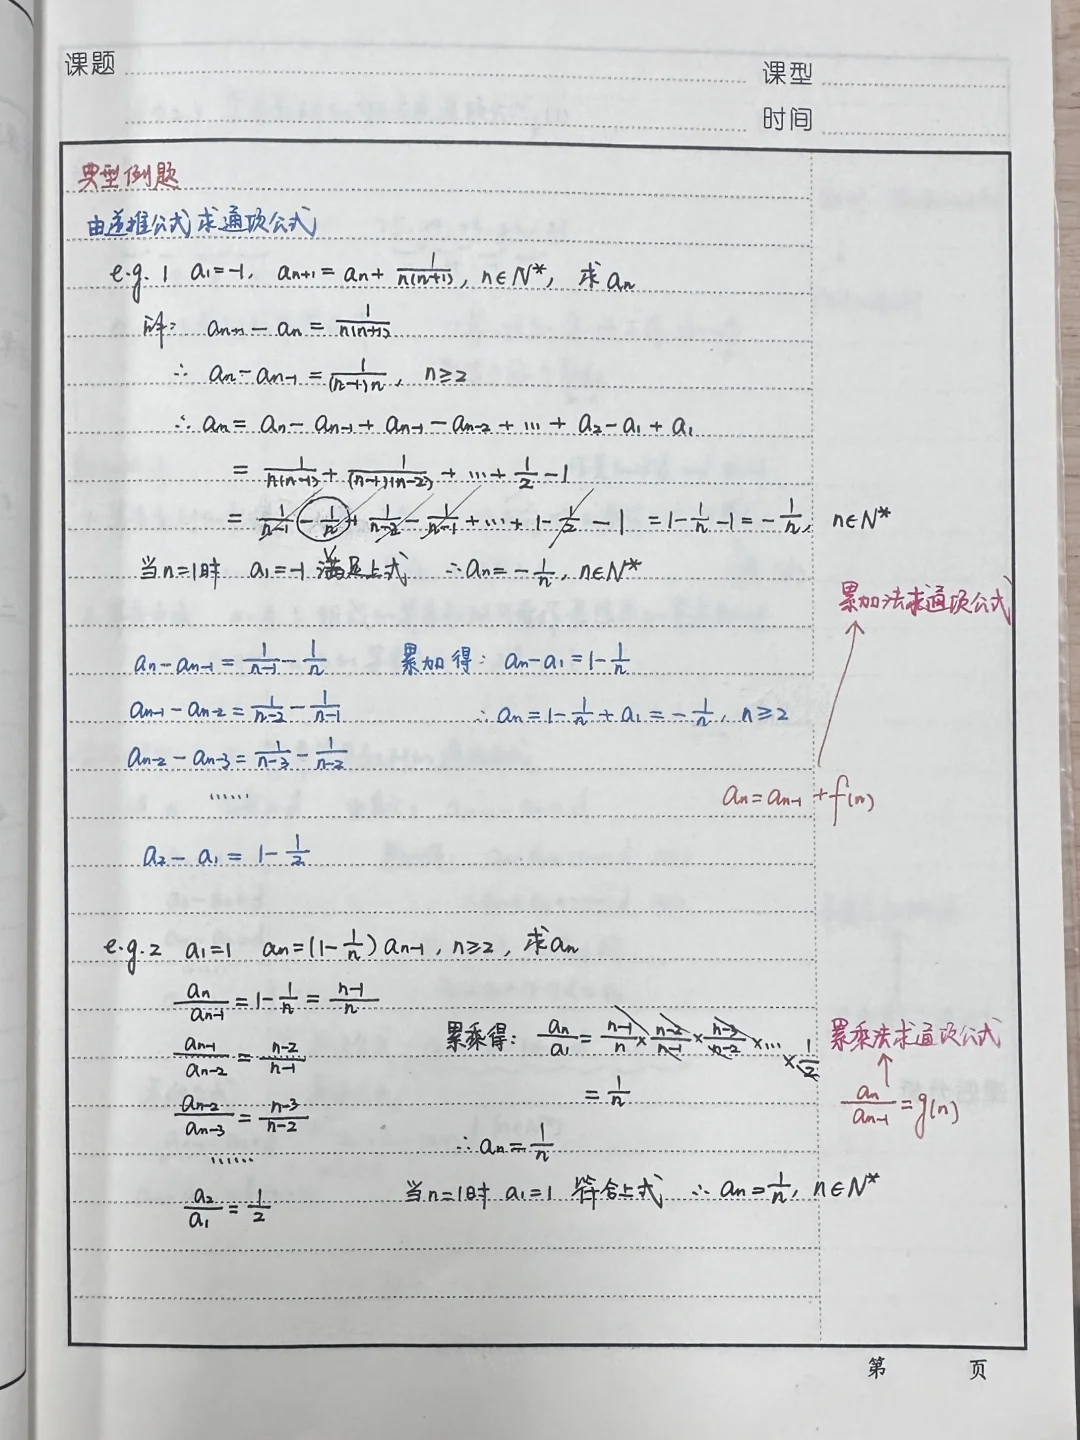 课题
课型
时间
典型例题
由递推公式求通项公式
e.g. 1 a₁=-1, aₙ₊₁=aₙ+1/n(n+1), n∈N*, 求aₙ
解: aₙ₊₁-aₙ=1/n(n+1)
∴ aₙ-aₙ₋₁=1/(n-1)n, n≥2
∴ aₙ=aₙ-aₙ₋₁+aₙ₋₁-aₙ₋₂+…+a₂-a₁+a₁
=1/n(n-1)+1/(n-1)(n-2)+…+1/2-1
=1/n-1-1/n+1/n-2-1/n-1+…+1-1/2-1=1-1/n-1=-1/n, n∈N*
当n=1时 a₁=-1 满足上式 ∴aₙ=-1/n, n∈N*
累加法求通项公式
aₙ-aₙ₋₁=1/n-1-1/n 累加得: aₙ-a₁=1-1/n
aₙ₋₁-aₙ₋₂=1/n-2-1/n-1 ∴aₙ=1-1/n+a₁=-1/n, n≥2
aₙ₋₂-aₙ₋₃=1/n-3-1/n-2
……
aₙ=aₙ₋₁+f(n)
a₂-a₁=1-1/2
e.g.2 a₁=1 aₙ=(1-1/n)aₙ₋₁, n≥2, 求aₙ
aₙ/aₙ₋₁=1-1/n=n-1/n
aₙ₋₁/aₙ₋₂=n-2/n-1 累乘得: aₙ/a₁=n-1/n×n-2/n-1×n-3/n-2×…×1/2
累乘法求通项公式
=1/n
aₙ/aₙ₋₁=g(n)
aₙ₋₂/aₙ₋₃=n-3/n-2
……
∴aₙ=1/n
a₂/a₁=1/2 当n=1时 a₁=1 符合上式 ∴aₙ=1/n, n∈N*
第 页